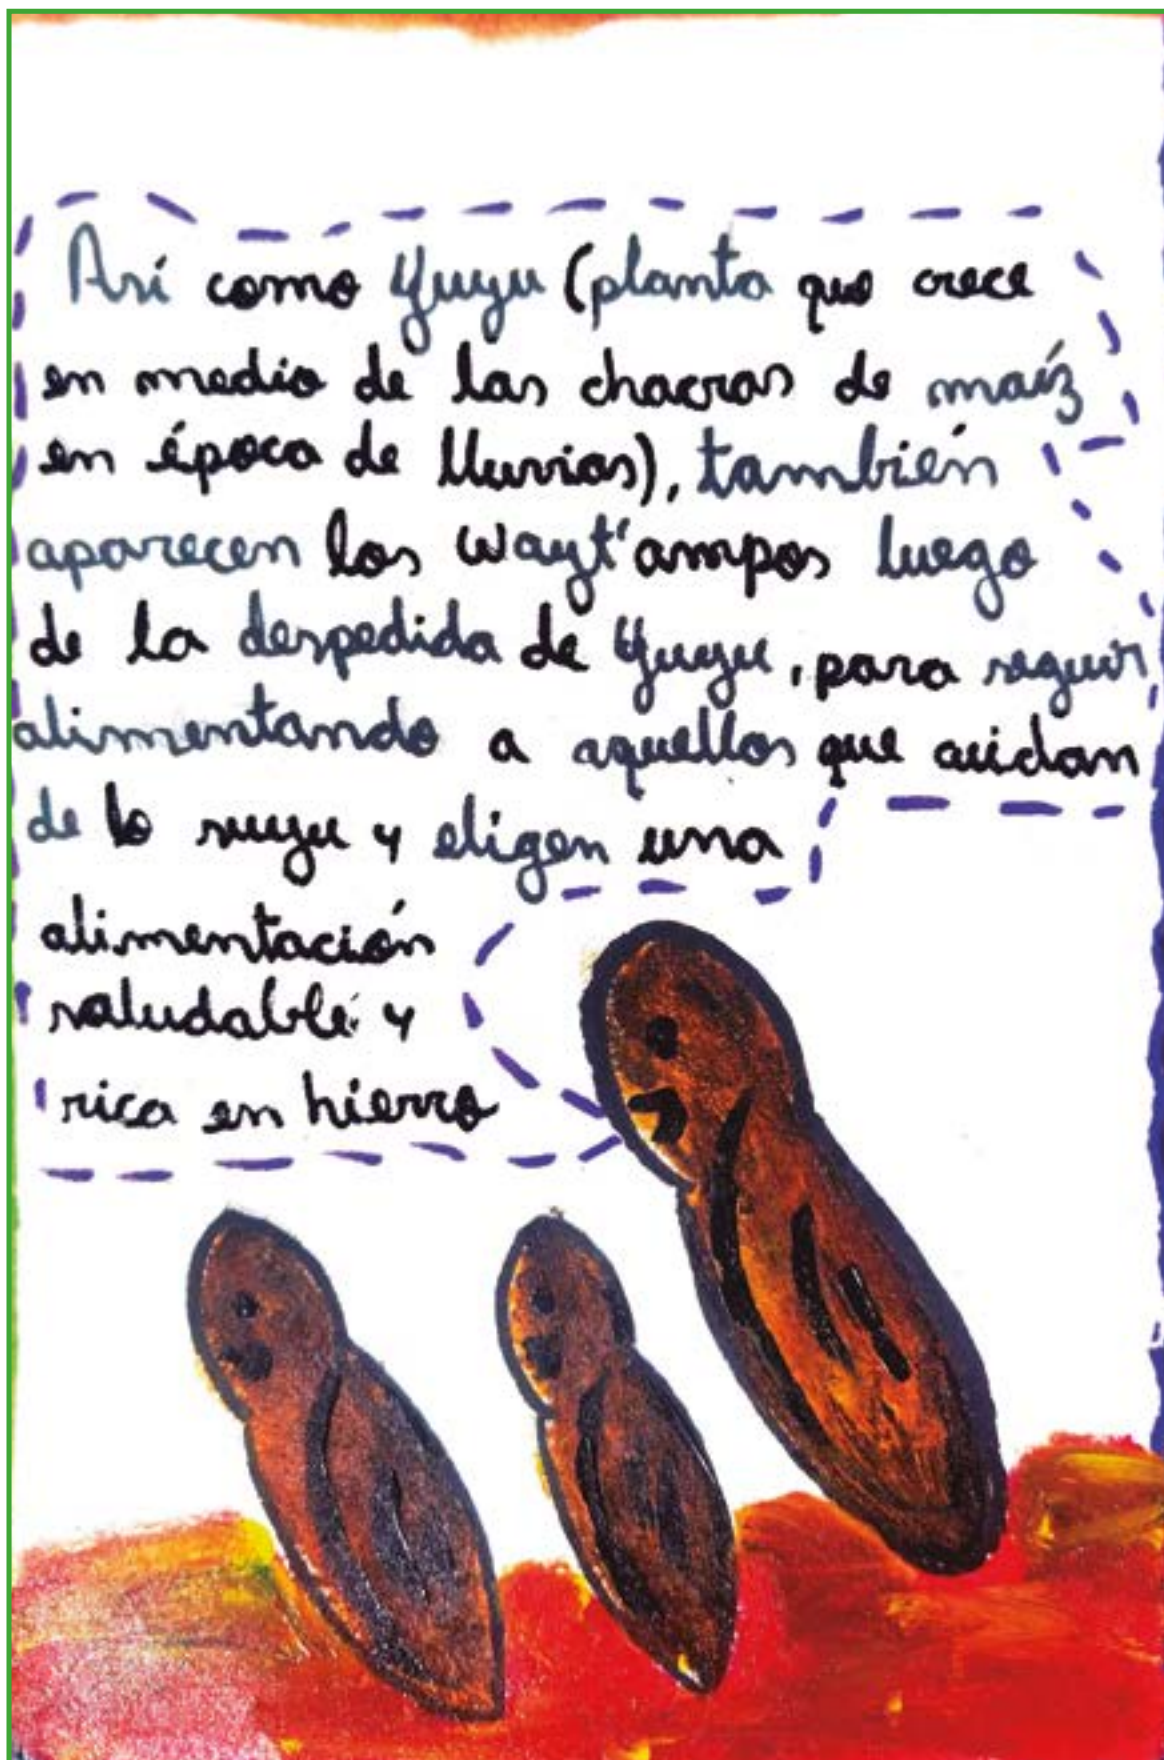 Así como Yuyu (planta que crece
en medio de las chacras de maíz
en época de lluvias), también
aparecen los wayt'ampos luego
de la despedida de Yuyu, para seguir
alimentando a aquellos que cuidan
de lo suyu y eligen una
alimentación
saludable y
rica en hierro